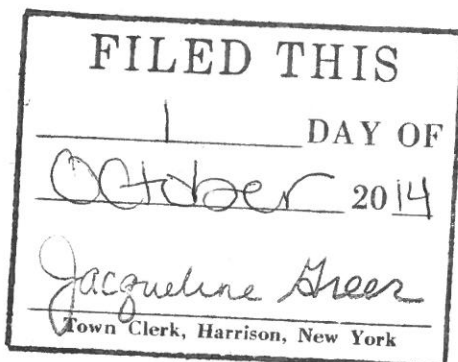 FILED THIS
1 DAY OF
October 2014
Jacqueline Greer
Town Clerk, Harrison, New York